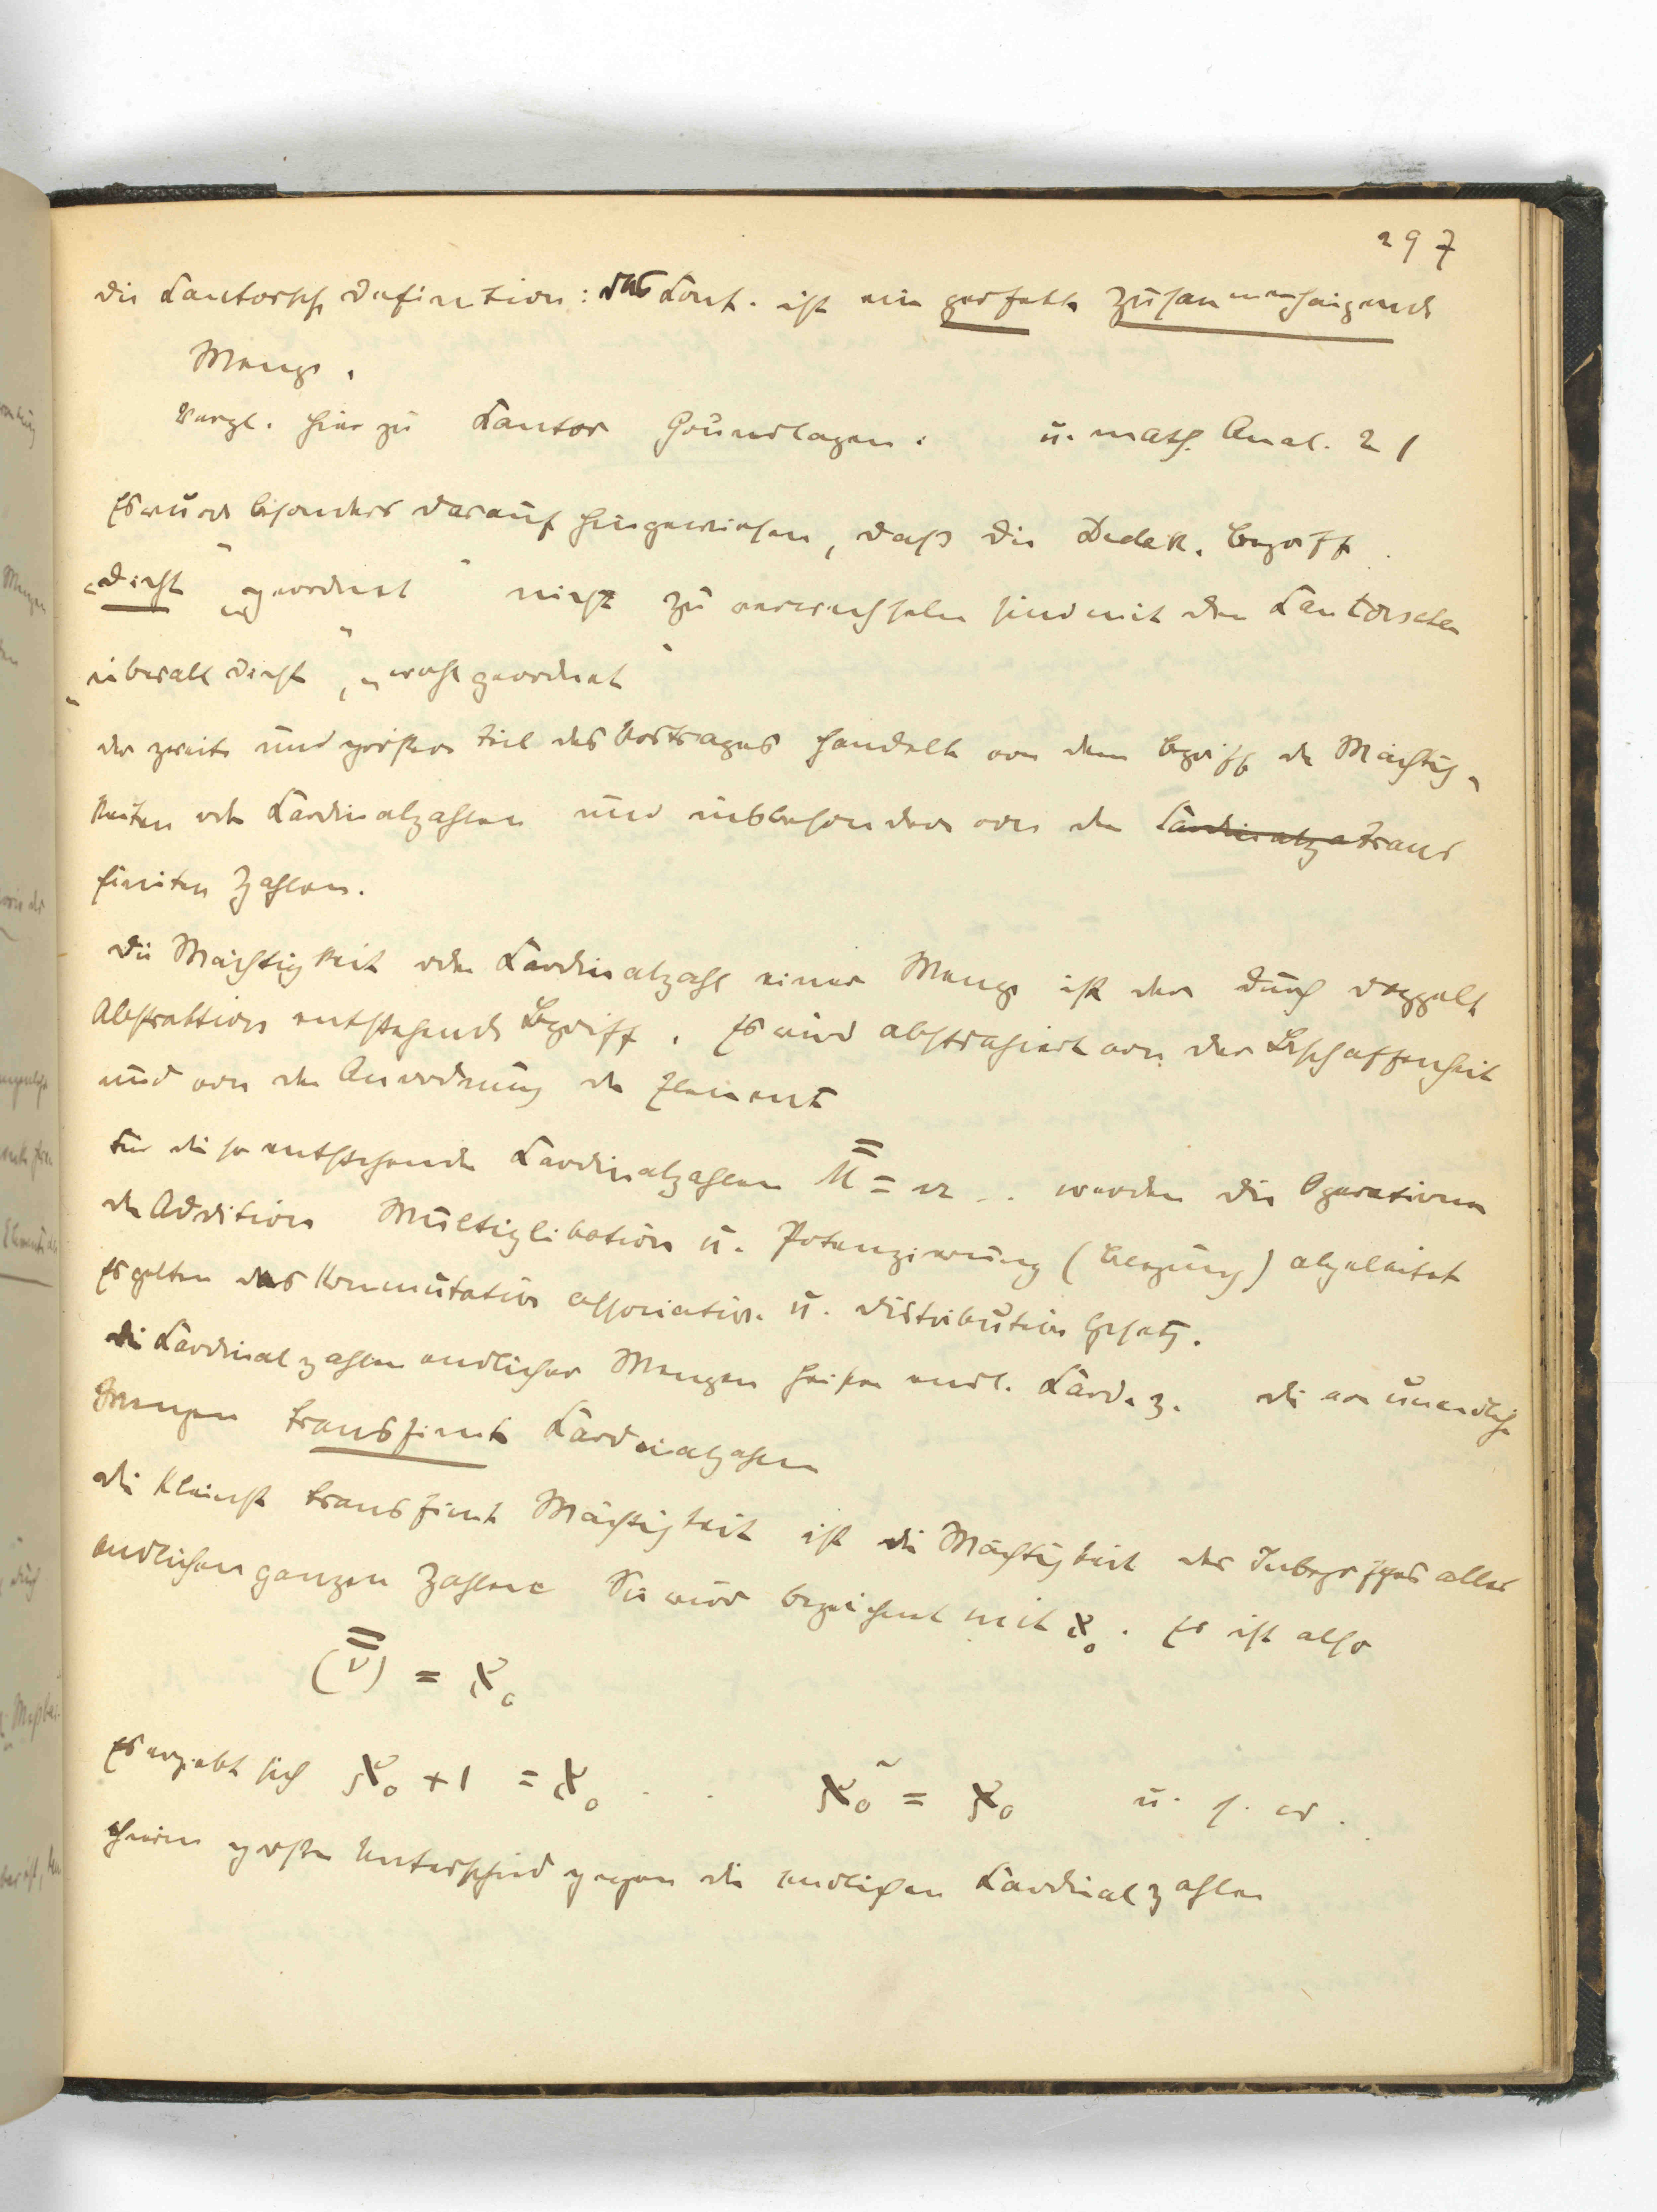 297
die Cantorsche Definition: das Cont. ist eine perfekte zusammenhängende
Menge.
Vergl. hierzu Cantor Grundlagen. u. math. Anal. 21
Es wurde besonders darauf hingewiesen, daß die Dedek. Begriffe
„dicht" „geordnet" nicht zu verwechseln sind mit den Cantorschen
„überall dicht", „wohlgeordnet"
der zweite und größere Teil des Vortrages handelte von dem Begriff der Mächtig-
keiten oder Cardinalzahlen und insbesondere von den Cardinalza trans
finiten Zahlen.
Die Mächtigkeit oder Cardinalzahl einer Menge ist der durch doppelte
Abstraktion entstehende Begriff. Es wird abstrahiert von der Beschaffenheit
und von der Anordnung der Elemente
Für die so entstehenden Cardinalzahlen M̿ = m .. werden die Operationen
der Addition Multiplikation u. Potenzierung (Belegung) abgeleitet
Es gelten das Kommutative associative u. distributive Gesetz.
die Cardinalzahlen endlicher Mengen heißen endl. Card. z. die von unendliche
Mengen transfinite Cardinalzahlen
die kleinste transfinite Mächtigkeit ist die Mächtigkeit des Inbegriffes aller
endlichen ganzen Zahlen Sie wird bezeichnet mit ℵ₀. Es ist also
(ν̿) = ℵ₀
Es ergiebt sich ℵ₀ + 1 = ℵ₀ . . ℵ₀² = ℵ₀ u. s. w.
großer Unterschied gegen die endlichen Cardinalzahlen